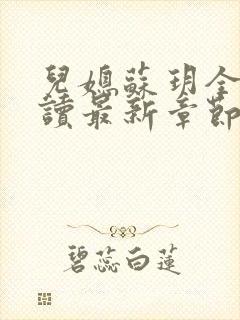 兒媳蘇玥全
讀最新章節
碧蕊白蓮